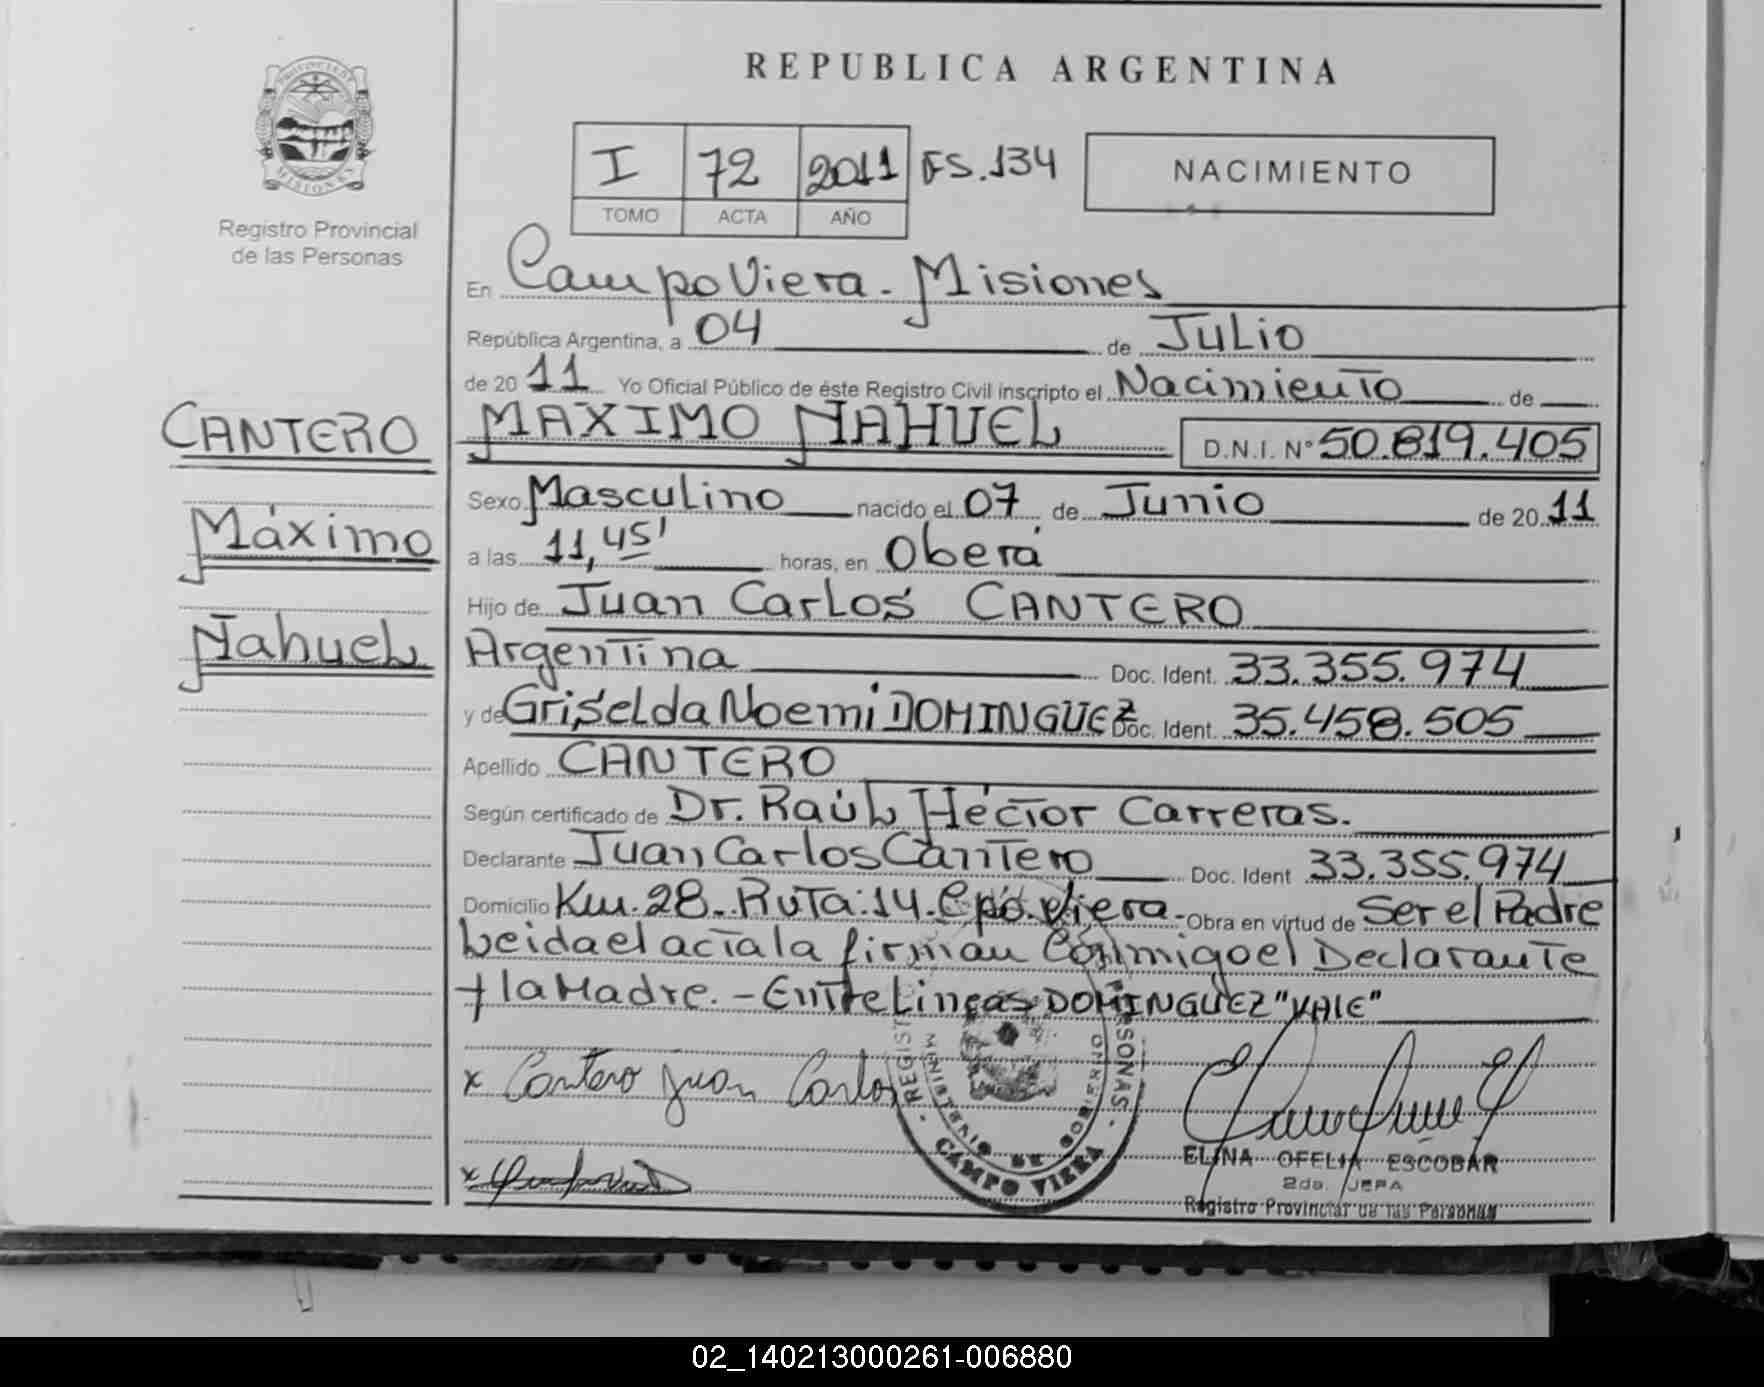 REPUBLICA ARGENTINA
PROVINCIA DE
MISIONES
Registro Provincial
de las Personas
I 72 2011 FS.134
TOMO ACTA AÑO
NACIMIENTO
En Campo Viera - Misiones
República Argentina, a 04 de Julio
de 20 11 Yo Oficial Público de éste Registro Civil inscripto el Nacimiento de
MAXIMO NAHUEL D.N.I. Nº 50.819.405
CANTERO
Máximo
Nahuel
Sexo Masculino nacido el 07 de Junio de 20 11
a las 11,45' horas, en Oberá
Hijo de Juan Carlos CANTERO
Argentina Doc. Ident. 33.355.974
y de Griselda Noemi DOMINGUEZ Doc. Ident. 35.458.505
Apellido CANTERO
Según certificado de Dr. Raúl Héctor Carreras.
Declarante Juan Carlos Cantero Doc. Ident 33.355.974
Domicilio Km. 28. Ruta: 14. Cpo. Viera - Obra en virtud de Ser el Padre
Leida el acta la firman Conmigo el Declarante
y la Madre. - Entre Lineas DOMINGUEZ "VALE"
x Cantero Juan Carlos
x
REGIST SONAS
MINISTERIO DE GOBIERNO
CAMPO VIERA
ELINA OFELIA ESCOBAR
2da. JEFA
Registro Provincial de las Personas
02_140213000261-006880